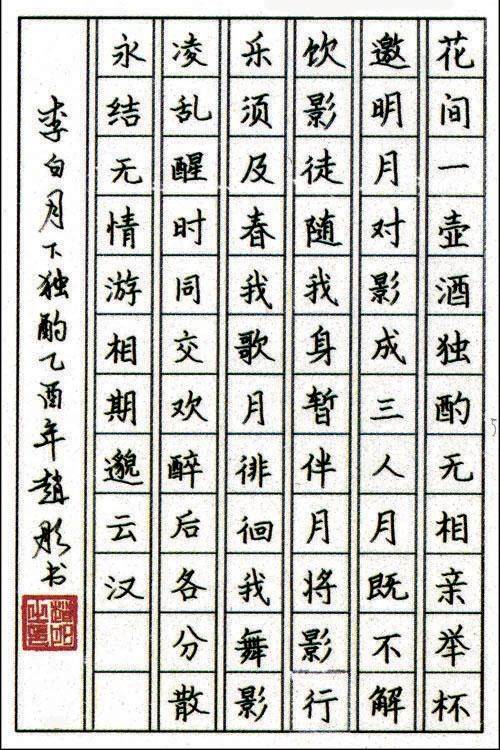 花间一壶酒独酌无相亲举杯
邀明月对影成三人月既不解
饮影徒随我身暂伴月将影行
乐须及春我歌月徘徊我舞影
凌乱醒时同交欢醉后各分散
永结无情游相期邈云汉
李白月下独酌乙酉年赵彤书